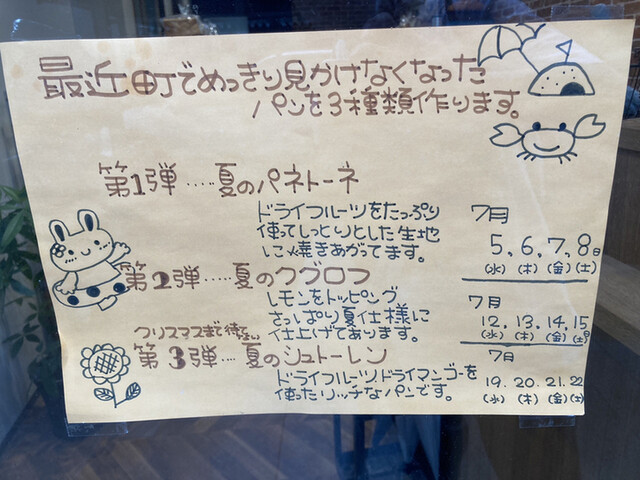 最近町でめっきり見かけなくなった
パンを3種類作ります。
第1弾‥‥夏のパネトーネ
ドライフルーツをたっぷり
使ってしっとりとした生地
に焼きあがってます。
7月
5,6,7,8日
(水)(木)(金)(土)
第2弾‥‥夏のクグロフ
レモンをトッピング
さっぱり夏仕様に
仕上げてあります。
7月
12,13,14,15日
(水)(木)(金)(土)
クリスマスまで待てない
第3弾‥‥夏のシュトーレン
ドライフルーツ、ドライマンゴーを
使ったリッチなパンです。
7月
19.20.21.22
(水)(木)(金)(土)